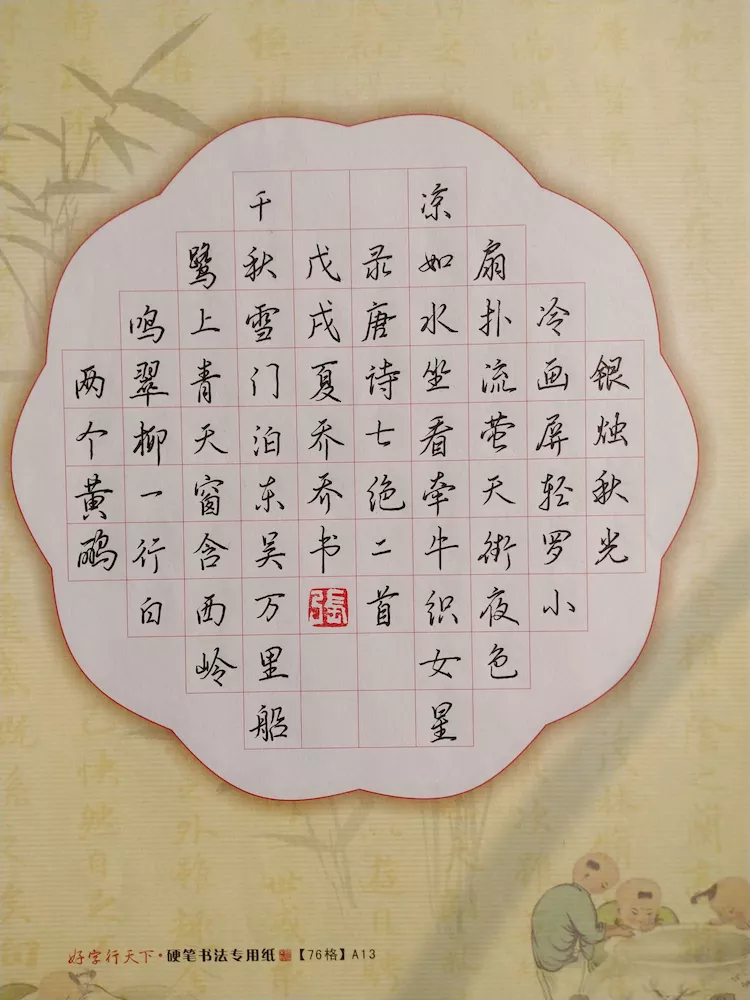 银烛秋光
冷画屏轻罗小
扇扑流萤天街夜色
凉如水坐看牵牛织女星
录唐诗七绝二首
戊戌夏乔乔书
張
千秋雪门泊东吴万里船
鹭上青天窗含西岭
鸣翠柳一行白
两个黄鹂
好字行天下·硬笔书法专用纸【76格】A13